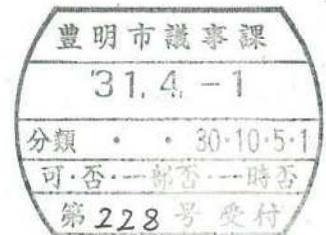 豊明市議事課
'31.4.-1
分類 ・ ・ 30・10・5・1
可・否・一部否・一時否
第228号受付